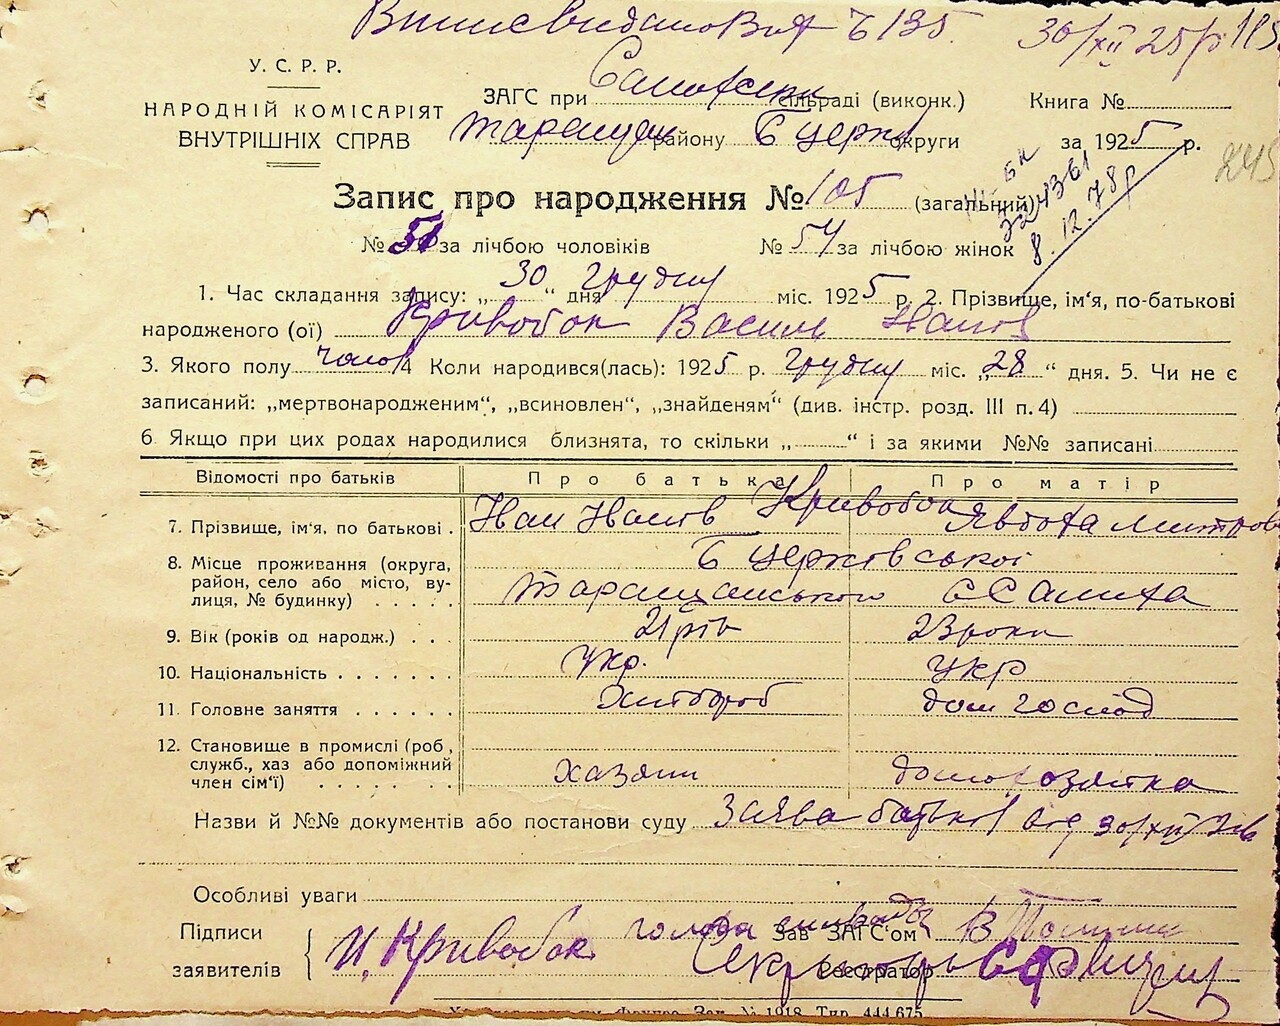 Випис видано Вик № 135. 30/XII 25 р 115
У. С. Р. Р.
НАРОДНІЙ КОМІСАРІЯТ
ВНУТРІШНІХ СПРАВ
ЗАГС при сільраді (виконк.)
Таращан району Б Церків округи
Книга №
за 1925 р.
245
8.12.78р
Запис про народження № 105 (загальний)
№ 51 за лічбою чоловіків № 54 за лічбою жінок
1. Час складання запису: „30“ дня грудня міс. 1925 р. 2. Прізвище, ім'я, по-батькові
народженого (ої) Кривобок Василь Іванів
3. Якого полу чолов 4 Коли народився(лась): 1925 р. грудня міс. „28“ дня. 5. Чи не є
записаний: „мертвонародженим“, „всиновлен“, „знайденям“ (див. інстр. розд. III п. 4)
6. Якщо при цих родах народилися близнята, то скільки „ “ і за якими №№ записані
Відомості про батьків Про батька Про матір
7. Прізвище, ім'я, по батькові . Іван Іванів Кривобок Явдоха Митров
8. Місце проживання (округа, район, село або місто, вулиця, № будинку) . . . . . Б Церківської
Таращанського
9. Вік (років од народж.) . . . 21 рів 23 роки
10. Національність . . . . . . . Укр. Укр
11. Головне заняття . . . . . . Хлібороб дом господ
12. Становище в промислі (роб, служб., хаз або допоміжний член сім'ї) . . . . . . хазяїн домохозяйка
Назви й №№ документів або постанови суду Заява батька від 30/XII
Особливі уваги
Підписи
заявителів И. Кривобок
голова сільради Зав ЗАГС'ом
Секретарь Реєстратор
Зав. № 1918 Тир. 444.675